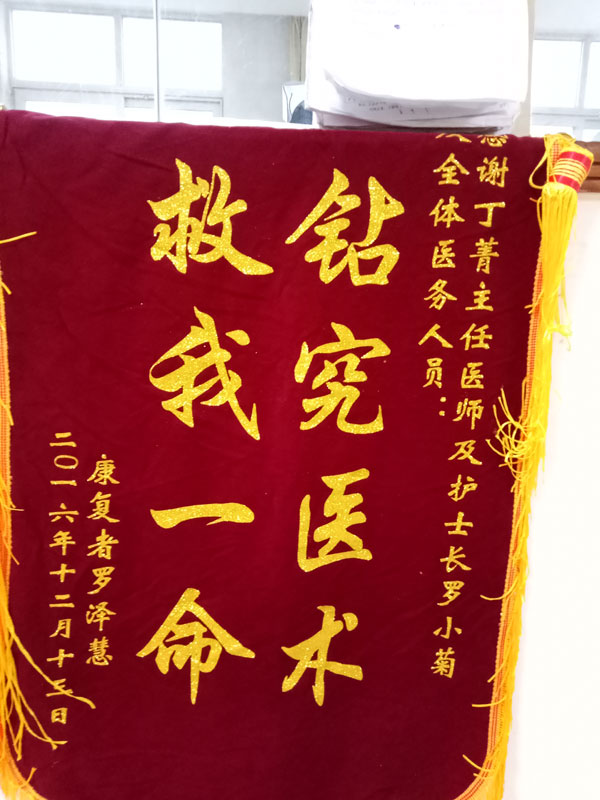 感谢丁菁主任医师及护士长罗小菊
及全体医务人员：
钻究医术
救我一命
康复者罗泽慧
二〇一六年十二月十五日